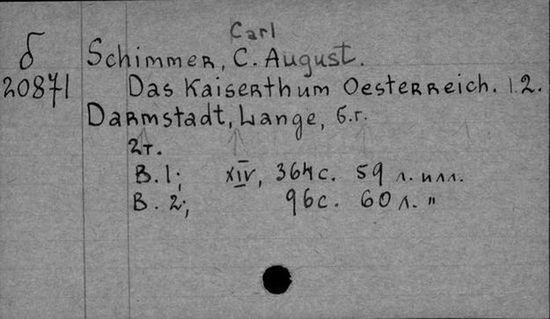 Carl
б Schimmer, C. August.
20871 Das Kaiserthum Oesterreich. 1.2.
Darmstadt, Lange, б.г.
2т.
B. 1; XIV, 364 с. 59 л. илл.
B. 2; 96 с. 60 л. "